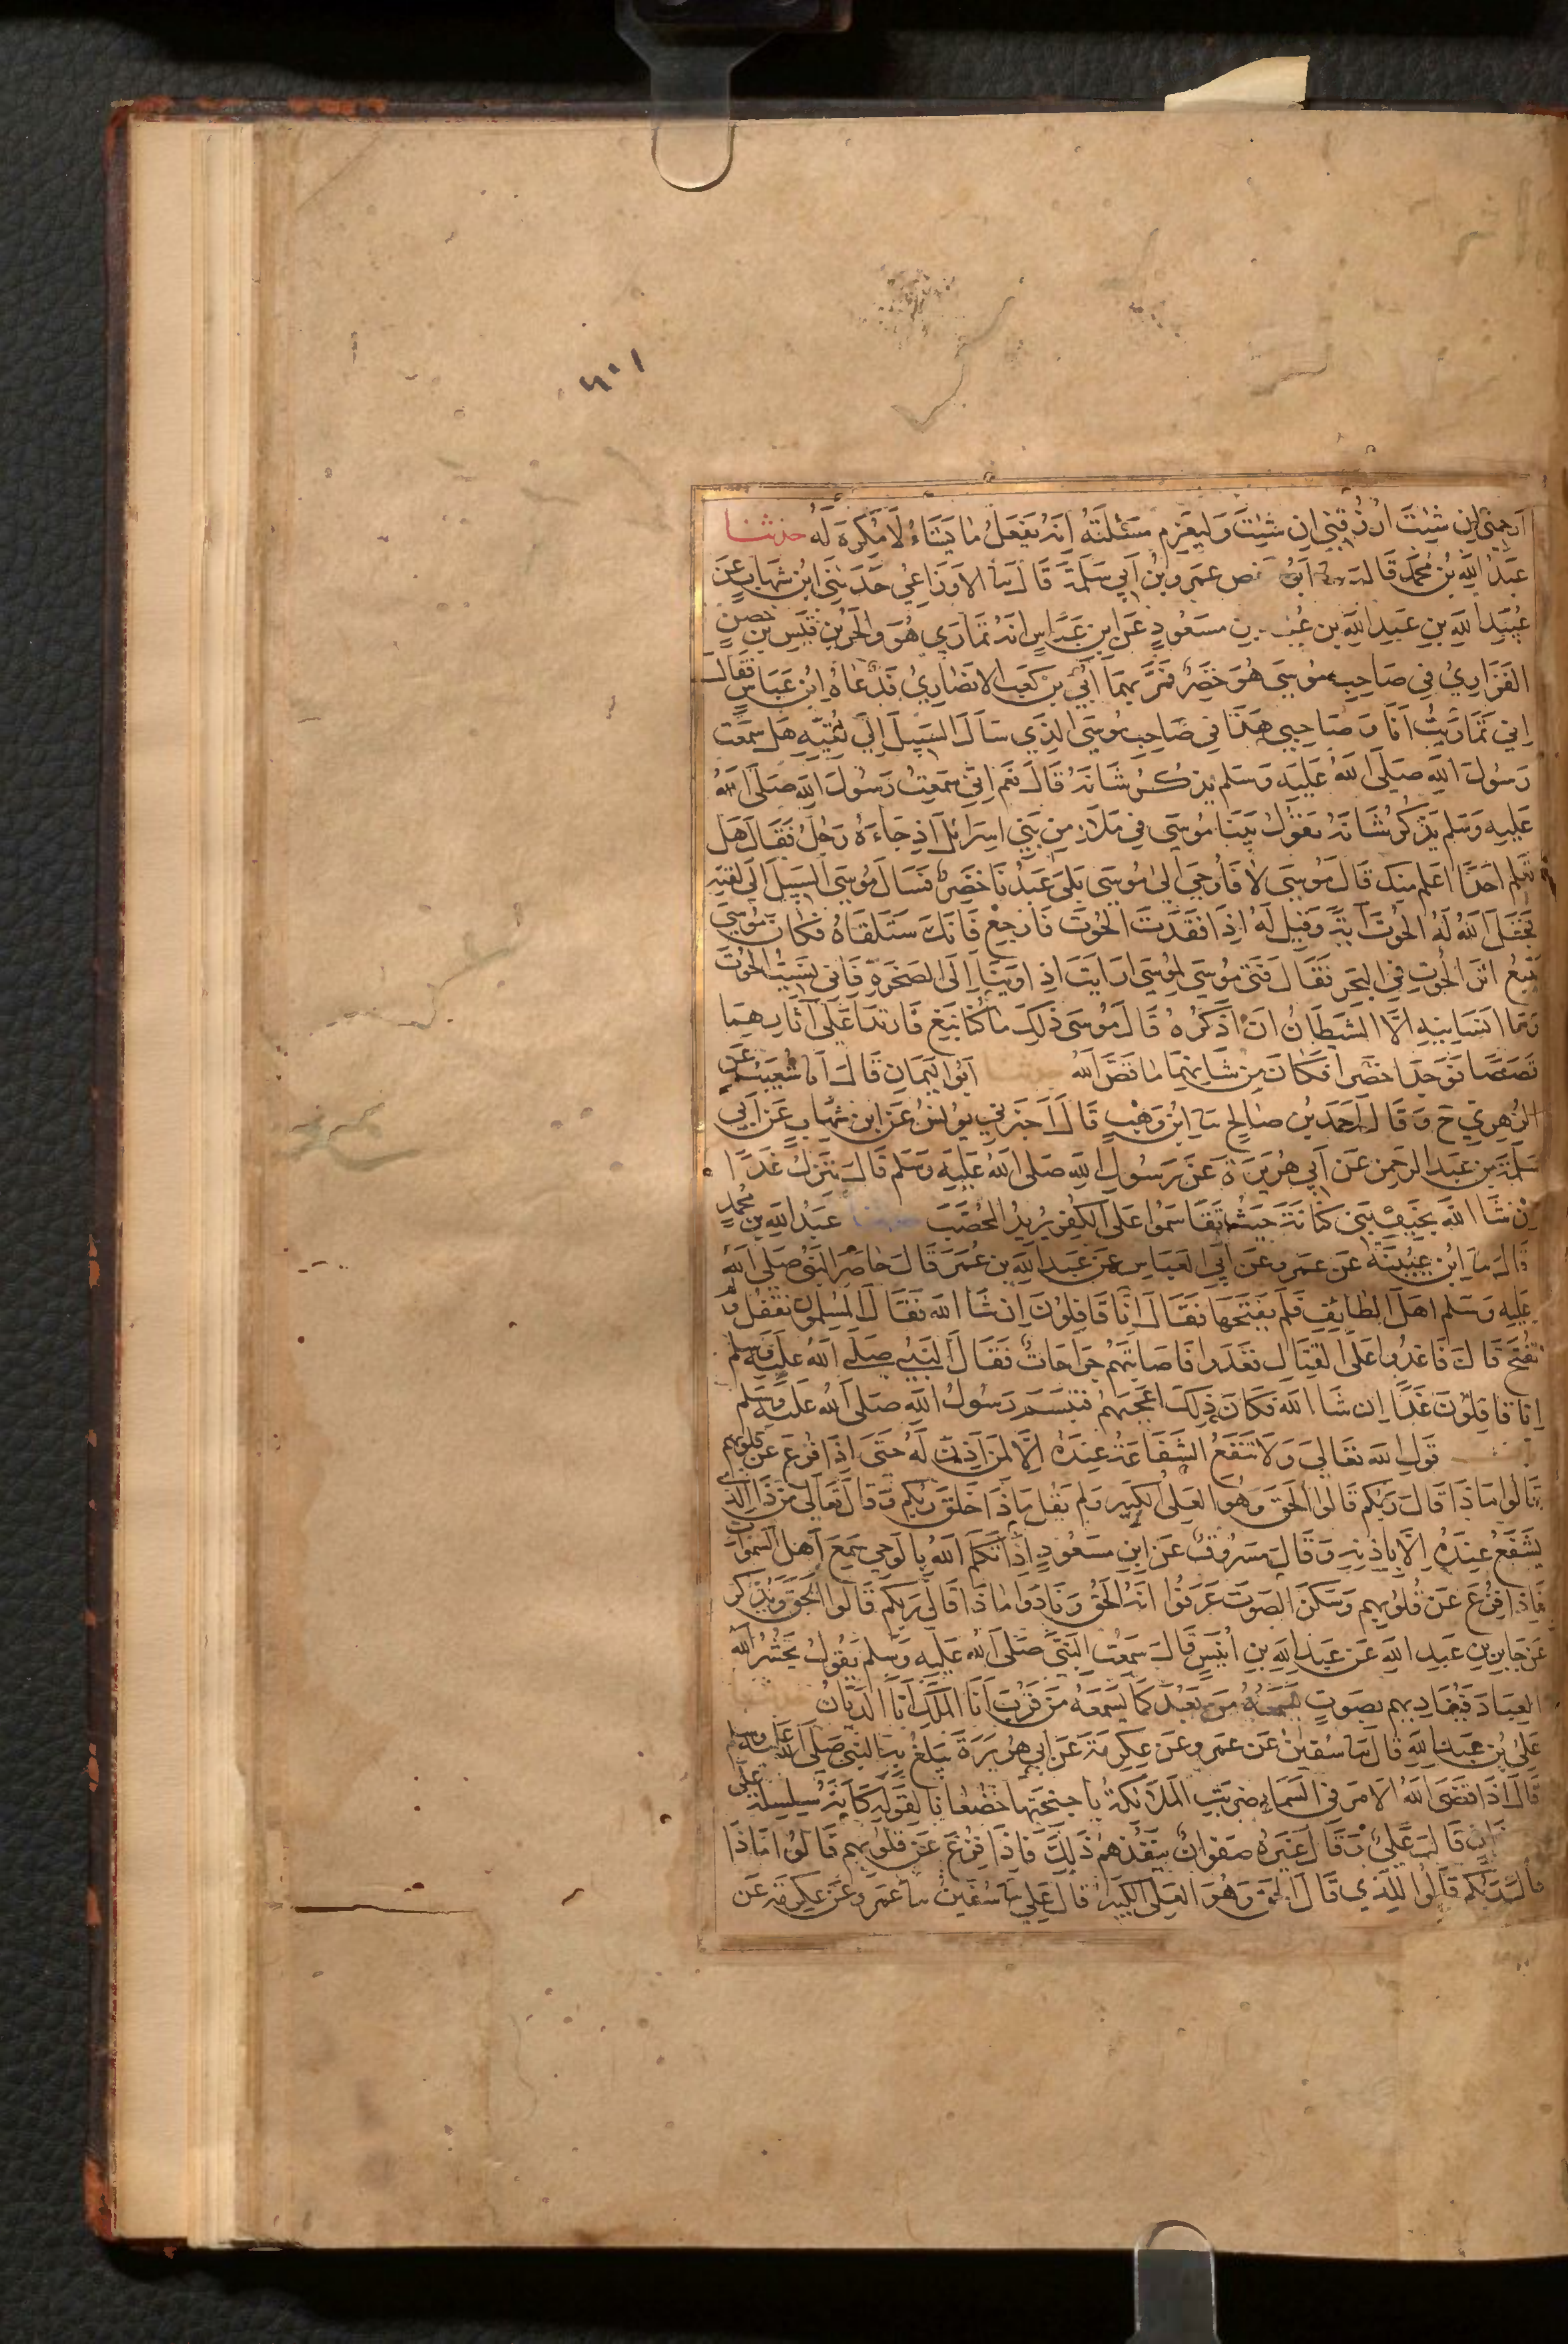 ٦٠١
ارحمني ان شئت ارزقني ان شئت وليعزم مسئلته انه يفعل ما يشاء لا مكره له حدثنا
عبد الله بن محمد قال ابو حفص عمرو بن ابي سلمة قال ثنا الاوزاعي حدثني ابن شهاب عن
عبيد الله بن عبيد الله بن عتبة بن مسعود عن ابن عباس انه تمارى هو والحر بن قيس بن حصن
الفزاري في صاحب موسى هو خضر فمر بهما ابي بن كعب الانصاري فدعاه ابن عباس فقال
اني تماريت انا وصاحبي هذا في صاحب موسى الذي سال السبيل الى لقيه هل سمعت
رسول الله صلى الله عليه وسلم يذكر شانه قال نعم اني سمعت رسول الله صلى الله
عليه وسلم يذكر شانه يقول بينا موسى في ملاء من بني اسرائل اذ جاءه رجل فقال هل
تعلم احدا اعلم منك قال موسى لا فاوحي الى موسى بلى عبدنا خضر فسال موسى السبيل الى لقيه
فجعل الله له الحوت آية وقيل له اذا فقدت الحوت فارجع فانك ستلقاه فكان موسى
يتبع اثر الحوت في البحر فقال فتى موسى لموسى ارايت اذ اوينا الى الصخرة فاني نسيت الحوت
وما انسانيه الا الشيطان ان اذكره قال موسى ذلك ما كنا نبغ فارتدا على آثارهما
قصصا فوجدا خضرا فكان من شانهما ما قص الله حدثنا ابو اليمان قال انا شعيب عن
الزهري ح وقال احمد بن صالح ثنا ابن وهب قال اخبرني يونس عن ابن شهاب عن ابي
سلمة بن عبد الرحمن عن ابي هريرة عن رسول الله صلى الله عليه وسلم قال ننزل غدا
ان شا الله بخيف بني كنانة حيث تقاسموا على الكفر يريد المحصب حدثنا عبد الله بن محمد
قال ثنا ابن عيينة عن عمرو عن ابي العباس عن عبد الله بن عمر قال حاصر النبي صلى الله
عليه وسلم اهل الطائف فلم يفتحها فقال انا قافلون ان شا الله فقال المسلمون نقفل ولم
نفتح قال فاغدوا على القتال فغدوا فاصابتهم جراحات فقال النبي صلى الله عليه وسلم
انا قافلون غدا ان شا الله فكان ذلك اعجبهم فتبسم رسول الله صلى الله عليه وسلم
قول الله تعالى ولا تنفع الشفاعة عنده الا لمن اذن له حتى اذا فزع عن قلوبهم
قالوا ماذا قال ربكم قالوا الحق وهو العلى الكبير ولم يقل ماذا خلق ربكم وقال تعالى من ذا الذي
يشفع عنده الا باذنه وقال مسروق عن ابن مسعود اذا تكلم الله بالوحي سمع اهل السموات
فاذا فزع عن قلوبهم وسكن الصوت عرفوا انه الحق ونادوا ماذا قال ربكم قالوا الحق ويذكر
عن جابر بن عبد الله عن عبد الله بن انيس قال سمعت النبي صلى الله عليه وسلم يقول يحشر الله
العباد فيناديهم بصوت يسمعه من بعد كما يسمعه من قرب انا الملك انا الديان
علي بن عبد الله قال ثنا سفين عن عمرو عن عكرمة عن ابي هريرة يبلغ به النبي صلى الله عليه وسلم
قال اذا قضى الله الامر في السماء ضربت الملائكة باجنحتها خضعانا لقوله كانه سلسلة على
صفوان قال علي وقال غيره صفوان ينفذهم ذلك فاذا فزع عن قلوبهم قالوا ماذا
قال ربكم قالوا للذي قال الحق وهو العلي الكبير قال علي ثنا سفين ثنا عمرو عن عكرمة عن